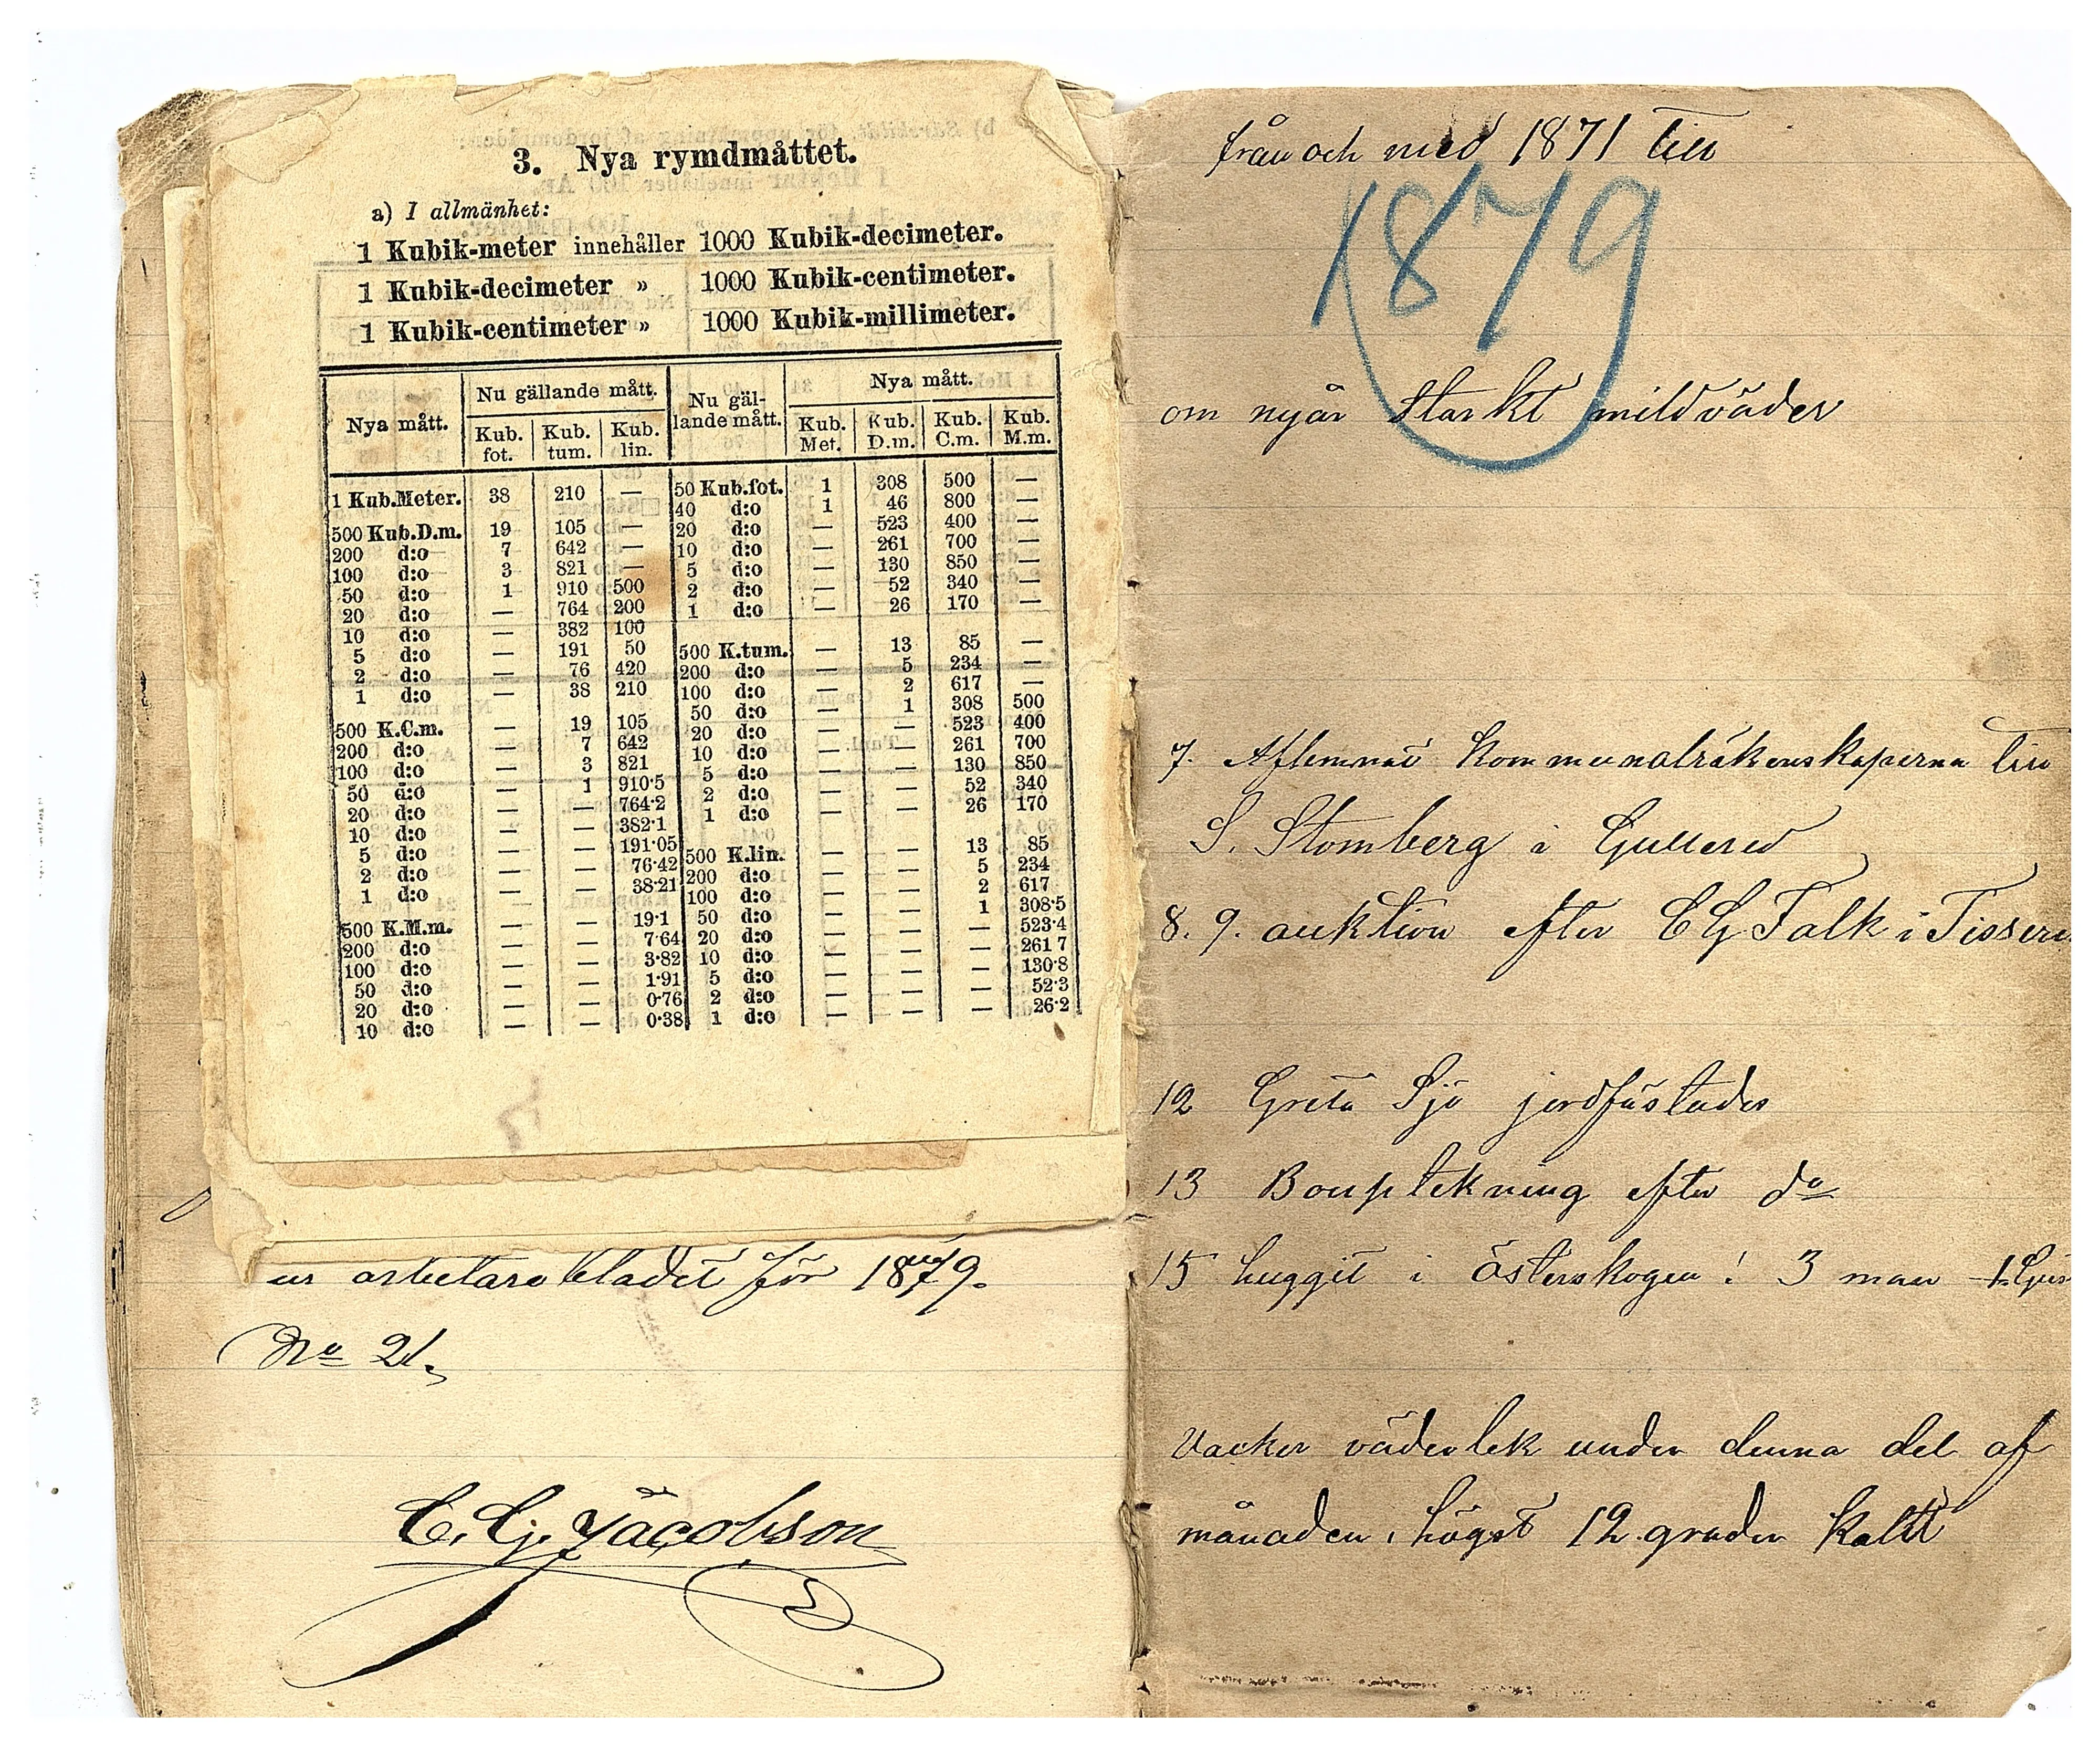 3. Nya rymdmåttet.
a) I allmänhet:
1 Kubik-meter innehåller 1000 Kubik-decimeter.
1 Kubik-decimeter » 1000 Kubik-centimeter.
1 Kubik-centimeter » 1000 Kubik-millimeter.
Nya mått. Nu gällande mått. Nu gäl-lande mått. Nya mått.
Kub. fot. Kub. tum. Kub. lin. Kub. Met. Kub. D.m. Kub. C.m. Kub. M.m.
1 Kub.Meter. 38 210 — 50 Kub.fot. 1 308 500 —
40 d:o 1 46 800 —
500 Kub.D.m. 19 105 — 20 d:o — 523 400 —
200 d:o 7 642 — 10 d:o — 261 700 —
100 d:o 3 821 — 5 d:o — 130 850 —
50 d:o 1 910 500 2 d:o — 52 340 —
20 d:o — 764 200 1 d:o — 26 170 —
10 d:o — 382 100
5 d:o — 191 50 500 K.tum. — 13 85 —
2 d:o — 76 420 200 d:o — 5 234 —
1 d:o — 38 210 100 d:o — 2 617 —
50 d:o — 1 308 500
500 K.C.m. — 19 105 20 d:o — — 523 400
200 d:o — 7 642 10 d:o — — 261 700
100 d:o — 3 821 5 d:o — — 130 850
50 d:o — 1 910·5 2 d:o — — 52 340
20 d:o — — 764·2 1 d:o — — 26 170
10 d:o — — 382·1
5 d:o — — 191·05 500 K.lin. — — 13 85
2 d:o — — 76·42 200 d:o — — 5 234
1 d:o — — 38·21 100 d:o — — 2 617
50 d:o — — 1 308·5
500 K.M.m. — — 19·1 20 d:o — — — 523·4
200 d:o — — 7·64 10 d:o — — — 261 7
100 d:o — — 3·82 5 d:o — — — 130·8
50 d:o — — 1·91 2 d:o — — — 52·3
20 d:o — — 0·76 1 d:o — — — 26·2
10 d:o — — 0·38
ur arbetare bladet för 1879.
No 21.
C. G. Jacobson
från och med 1871 till
1879
om nyår starkt mildväder
7. Aflemnat kommunalräkenskaperna till
S. Stomberg i Gullered
8. 9. auktion efter C G Falk i
12 Greta Sjö jordfästades
13 Bouptekning efter do
15 huggit i österskogen! 3 man
Vacker väderlek under denna del af
månaden, högst 12 grader kallt